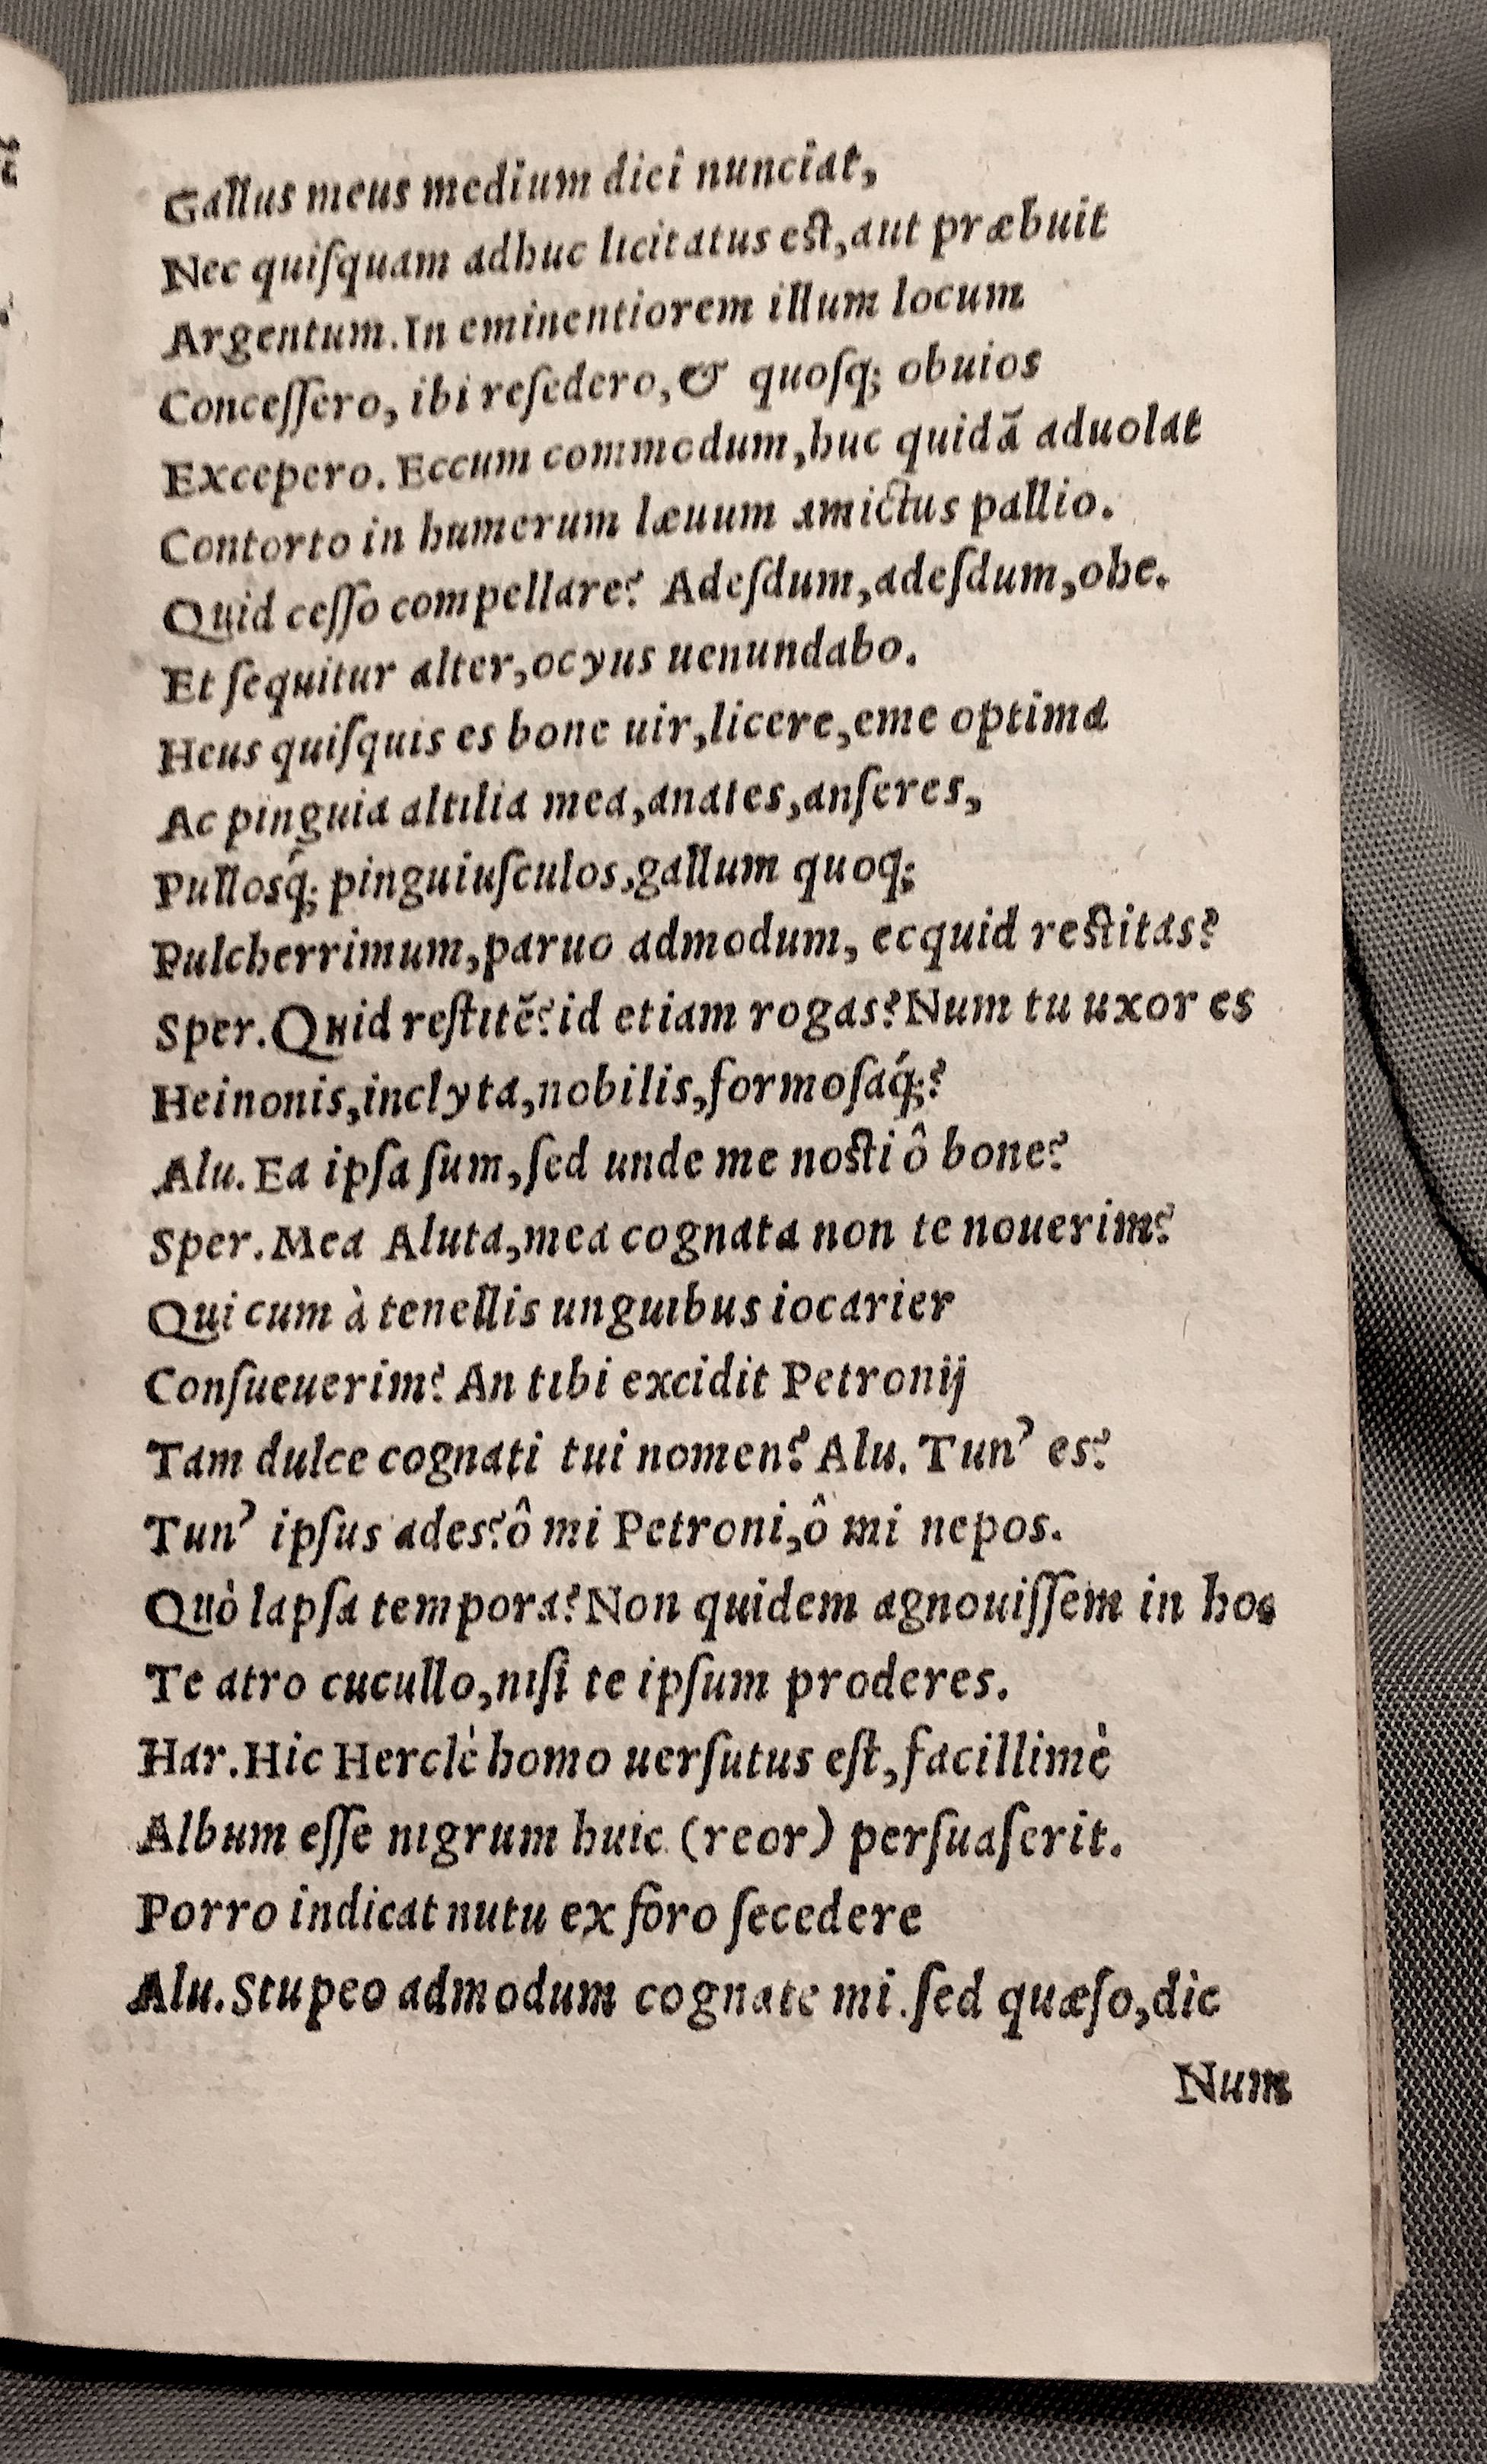 Gallus meus medium diei nunciat,
Nec quiſquam adhuc licitatus eſt,aut præbuit
Argentum.In eminentiorem illum locum
Conceſſero, ibi reſedero,& quoſq; obuios
Excepero. Eccum commodum,huc quidã aduolat
Contorto in humerum læuum amictus pallio.
Quid ceſſo compellare? Adeſdum,adeſdum,ohe.
Et ſequitur alter,ocyus uenundabo.
Heus quiſquis es bone uir,licere,eme optima
Ac pinguia altilia mea,anates,anſeres,
Pullosq́; pinguiuſculos,gallum quoq;
Pulcherrimum,paruo admodum, ecquid reſtitas?
Sper.Quid reſtitẽ?id etiam rogas?Num tu uxor es
Heinonis,inclyta,nobilis,formoſaq́;?
Alu. Ea ipſa ſum,ſed unde me noſti ô bone?
Sper.Mea Aluta,mea cognata non te nouerim?
Qui cum à tenellis unguibus iocarier
Conſueuerim? An tibi excidit Petronij
Tam dulce cognati tui nomen? Alu. Tun’ es?
Tun’ ipſus ades?ô mi Petroni,ô mi nepos.
Quò lapſa tempora?Non quidem agnouiſſem in hoc
Te atro cucullo,niſi te ipſum proderes.
Har.Hic Herclè homo uerſutus eſt,facillimè
Album eſſe nigrum huic (reor) perſuaſerit.
Porro indicat nutu ex foro ſecedere
Alu.Stupeo admodum cognate mi.ſed quæſo,dic
Num